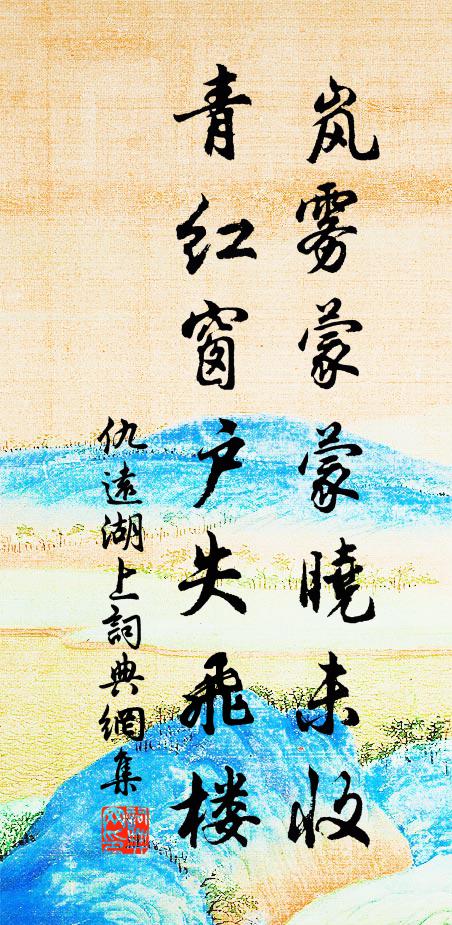 岚雾蒙蒙晓未收
青红窗户失飛楼
仇遠湖上詞典網集